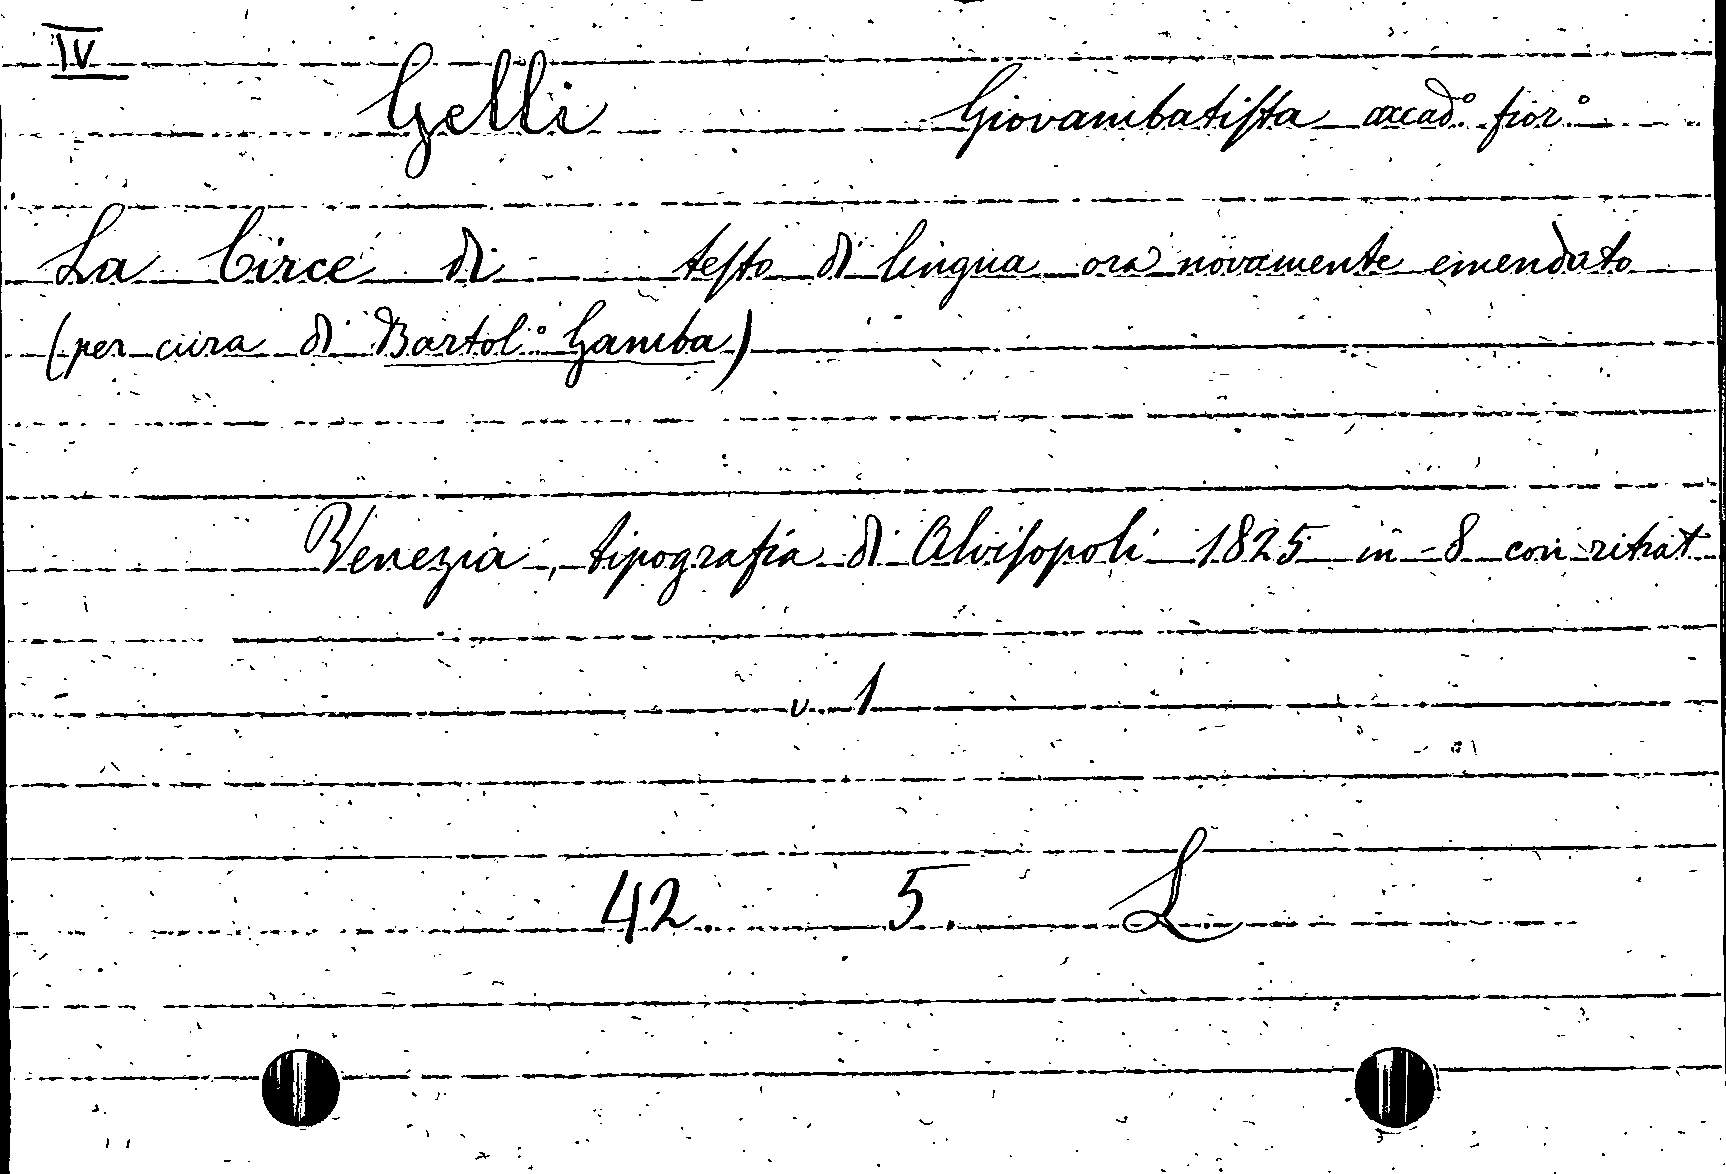 IV
Gelli Giovambatista accad.º fior.º
La Circe di testo di lingua ora novamente emendato
(per cura di Bartol.º Gamba)
Venezia, tipografia di Alvisopoli 1825 in-8 con ritrat
v. 1
42. 5. L